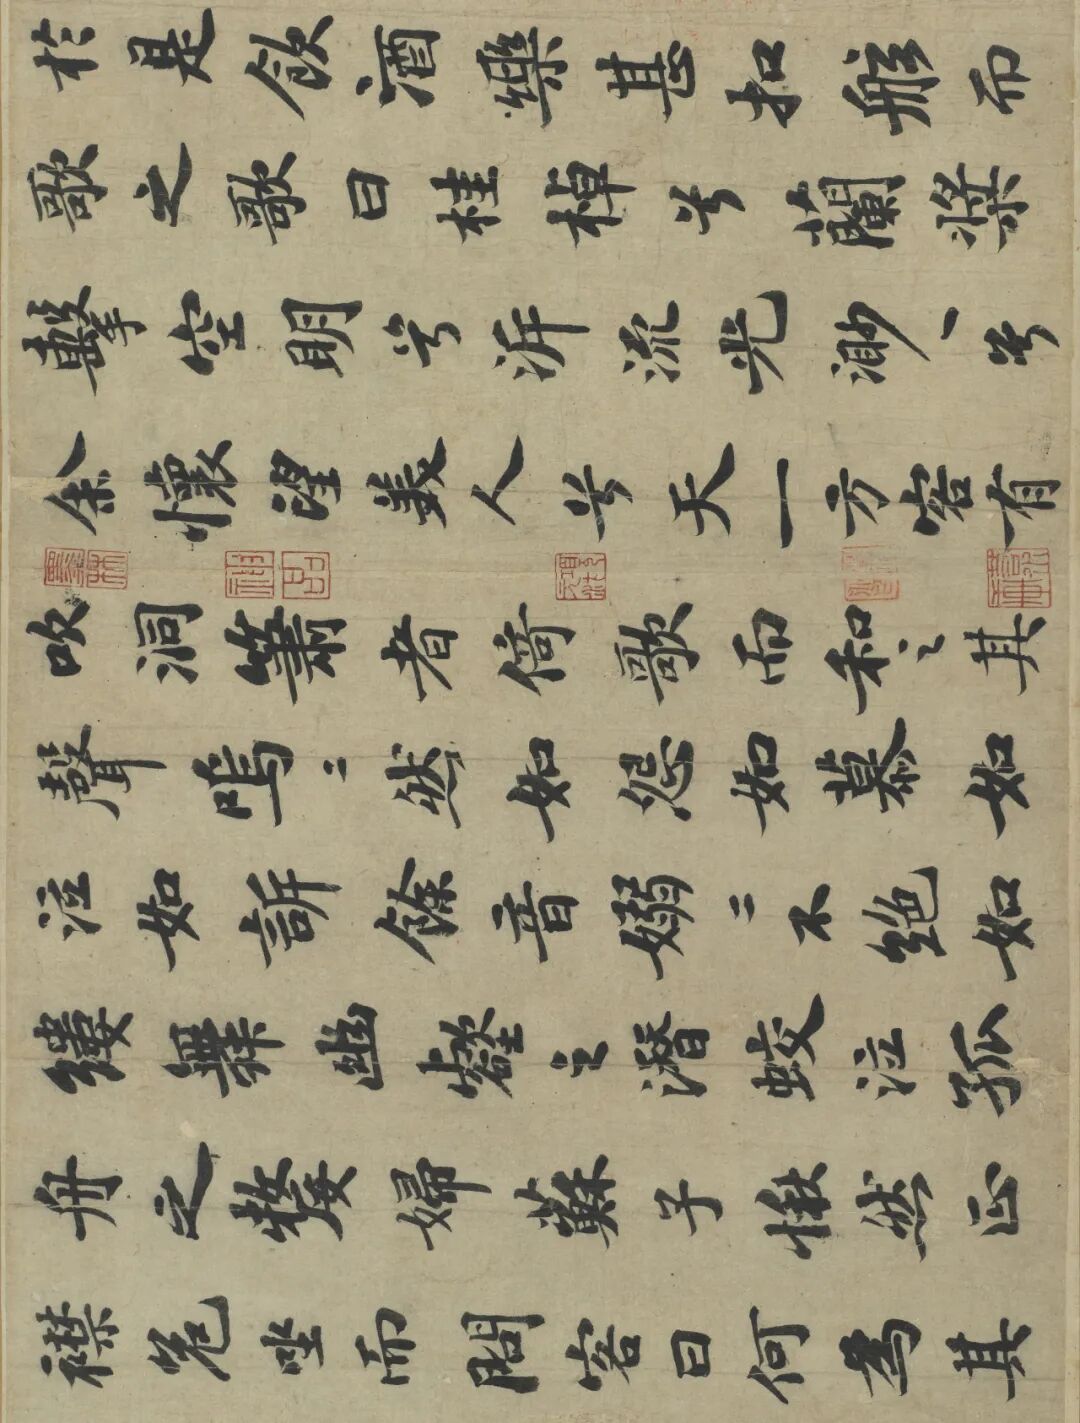 於是飲酒樂甚扣舷而
歌之歌曰桂棹兮蘭槳
擊空明兮泝流光渺〻兮
余懷望美人兮天一方客有
吹洞簫者倚歌而和之其
聲嗚〻然如怨如慕如
泣如訴餘音嫋〻不絕如
縷舞幽壑之潛蛟泣孤
舟之嫠婦蘇子愀然正
襟危坐而問客曰何為其